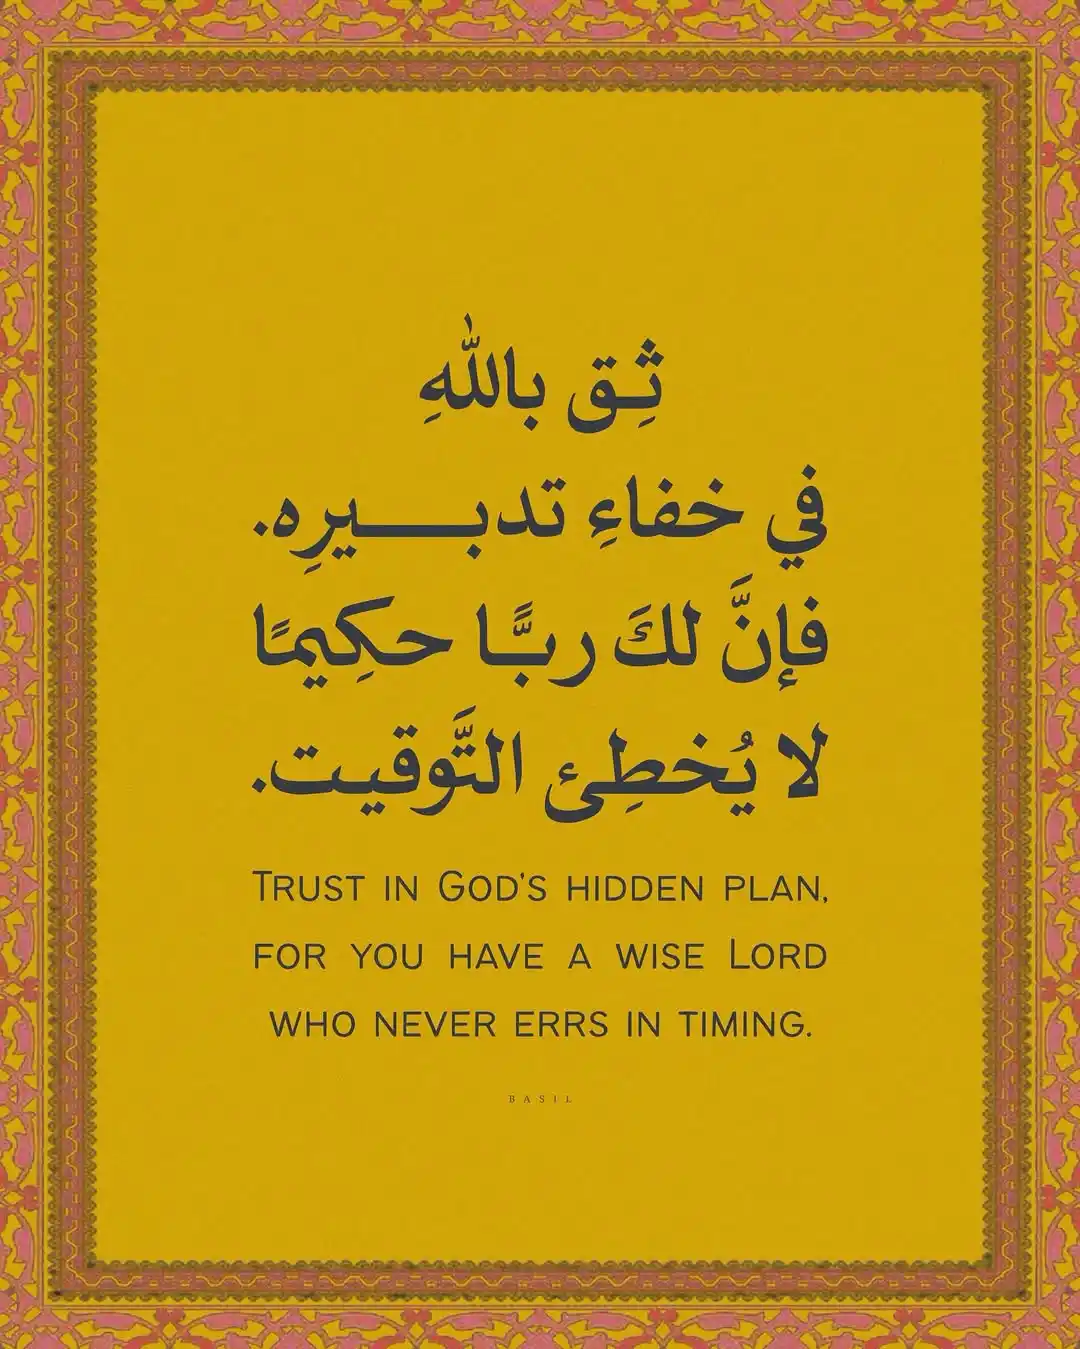 ثِق باللهِ
في خفاءِ تدبـــــيرِه.
فإنَّ لكَ ربًّا حكِيمًا
لا يُخطِئ التَّوقيت.
Trust in God's hidden plan,
for you have a wise Lord
who never errs in timing.
BASIL